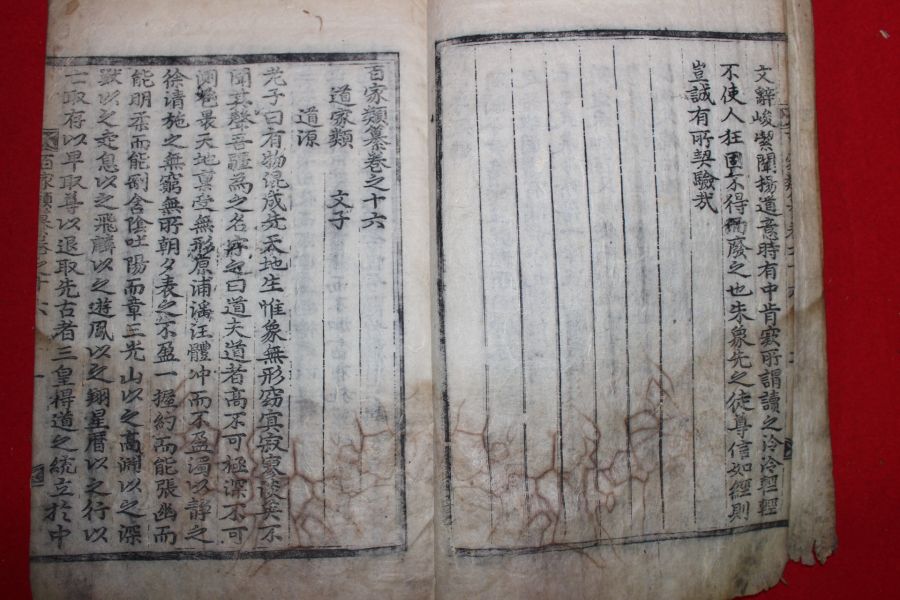 文辭峻絜闡揚道意時有中肯窾所謂讀之泠泠輕輕
不使人狂固不得而廢之也朱象先之徒尊信如經則
豈誠有所契驗哉
百家類纂卷之十六
道家類 文子
道源
老子曰有物混成先天地生惟象無形窈冥寂寥淡莫不
聞其聲吾彊為之名字之曰道夫道者高不可極深不可
測苞裹天地稟受無形原流汪體冲而不盈濁以靜之
徐清施之無窮無所朝夕表之不盈一握約而能張幽而
能明柔而能剛含陰吐陽而章三光山以之高淵以之深
獸以之走息以之飛麟以之遊鳳以之翔星曆以之行以
取得以卑取尊以退取先古者三皇得道之統立於中
百家類纂卷之十六 一